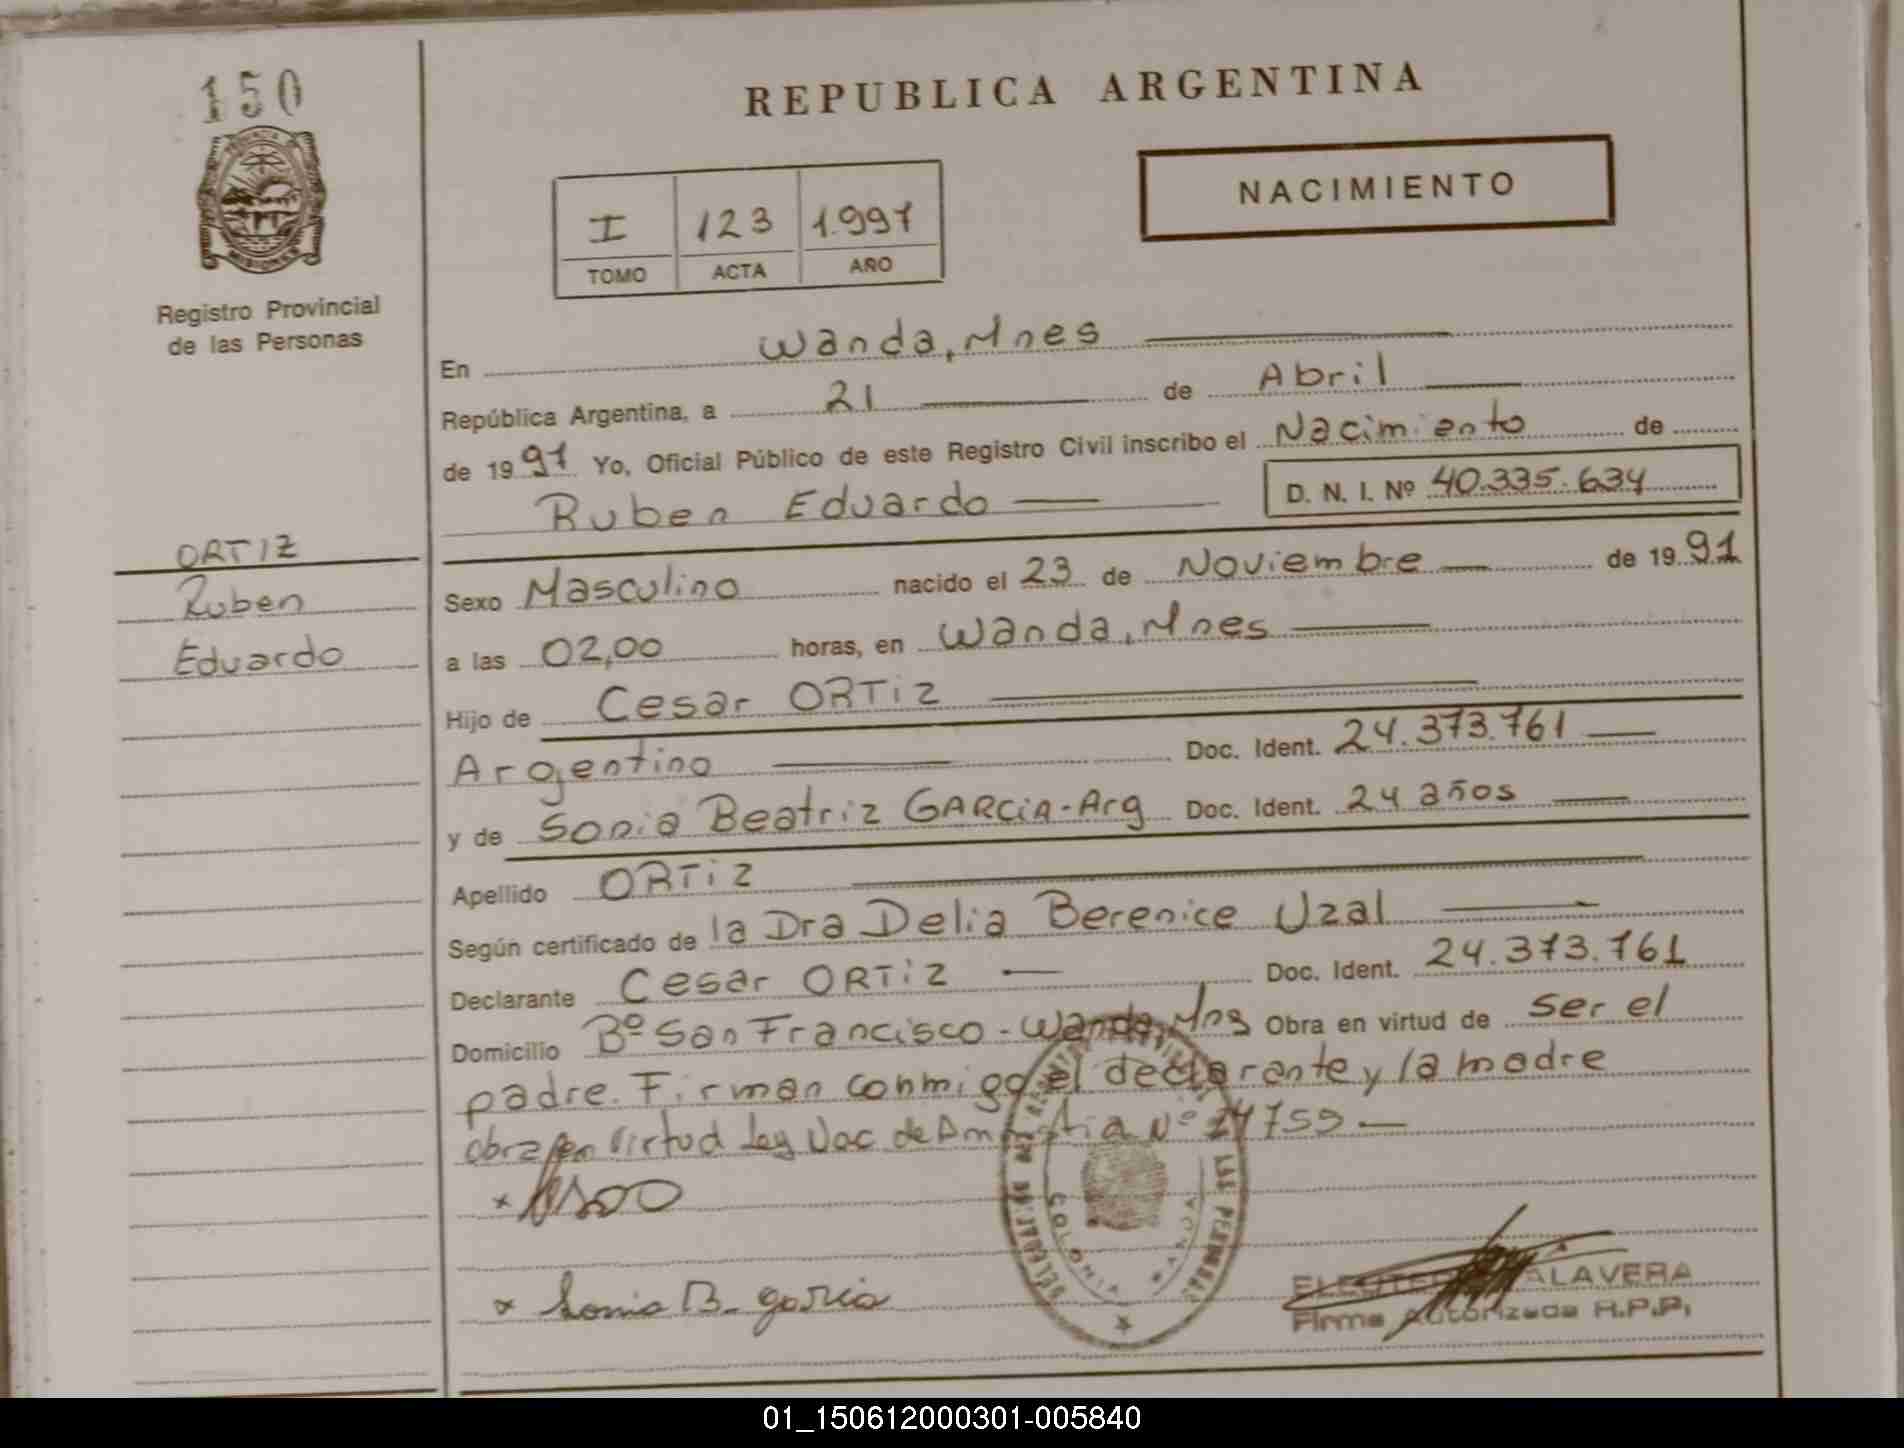 150
REPUBLICA ARGENTINA
PROVINCIA DE MISIONES
Registro Provincial
de las Personas
I 123 1.997
TOMO ACTA AÑO
NACIMIENTO
En Wanda, Mnes
República Argentina, a 21 de Abril
de 1997 Yo, Oficial Público de este Registro Civil inscribo el Nacimiento de
Ruben Eduardo D. N. I. Nº 40.335.634
ORTIZ
Ruben
Eduardo
Sexo Masculino nacido el 23 de Noviembre de 1991
a las 02,00 horas, en Wanda, Mnes
Hijo de Cesar ORTiZ
Argentino Doc. Ident. 24.373.761
y de Sonia Beatriz GARCiA-Arg Doc. Ident. 24 años
Apellido ORTiZ
Según certificado de la Dra Delia Berenice Uzal
Declarante Cesar ORTiZ Doc. Ident. 24.373.761
Domicilio Bº San Francisco - Wanda, Mns Obra en virtud de ser el
padre. Firman conmigo el declarante y la madre
obra en virtud Ley Nac. de Amnistia Nº 24755
COLONIA WANDA
Sonia B. garcia
ALAVERA
Firma Autorizada R.P.P.
01_150612000301-005840